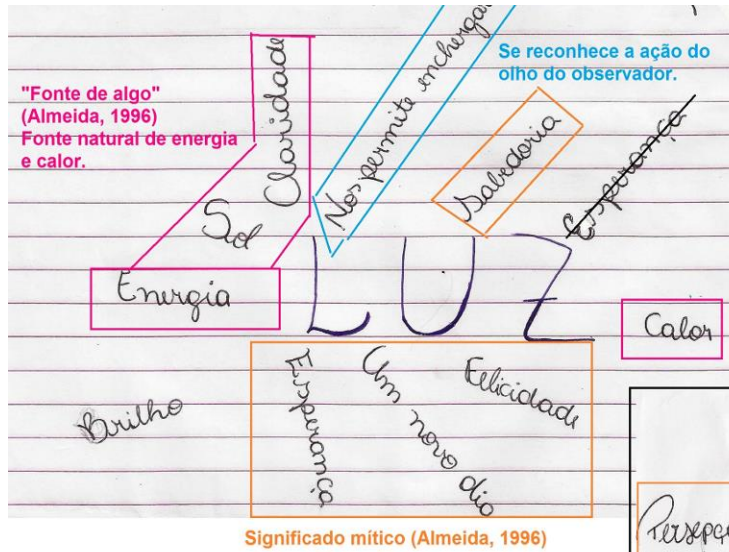 "Fonte de algo"
(Almeida, 1996)
Fonte natural de energia
e calor.
Claridade
Sol
Energia
Nos permite enchergar
Se reconhece a ação do
olho do observador.
Sabedoria
Esperança
LUZ
Calor
Brilho
Esperança
Um novo dia
Felicidade
Significado mítico (Almeida, 1996)